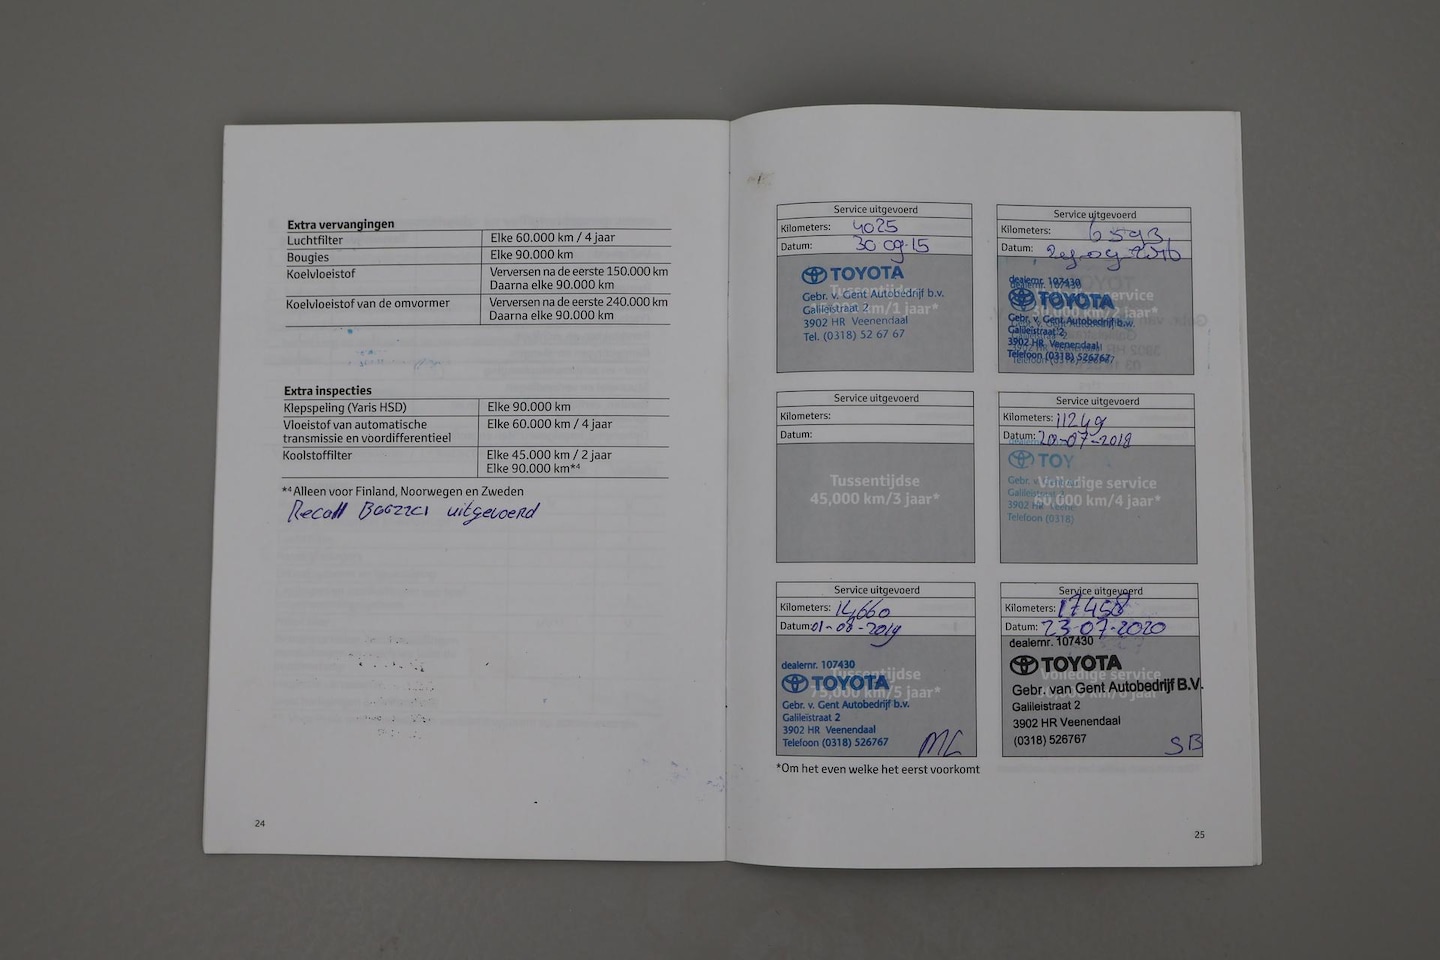 Extra vervangingen
Luchtfilter Elke 60.000 km / 4 jaar
Bougies Elke 90.000 km
Koelvloeistof Verversen na de eerste 150.000 km
Daarna elke 90.000 km
Koelvloeistof van de omvormer Verversen na de eerste 240.000 km
Daarna elke 90.000 km
Extra inspecties
Klepspeling (Yaris HSD) Elke 90.000 km
Vloeistof van automatische
transmissie en voordifferentieel
Elke 60.000 km / 4 jaar
Koolstoffilter Elke 45.000 km / 2 jaar
Elke 90.000 km*4
*4Alleen voor Finland, Noorwegen en Zweden
Recall uitgevoerd
24
Service uitgevoerd
Kilometers: 4025
Datum: 30 09-15
TOYOTA
Gebr. v. Gent Autobedrijf b.v.
Galileistraat 2
3902 HR Veenendaal
Tel. (0318) 52 67 67
km/1 jaar*
Service uitgevoerd
Kilometers: 6593
Datum: 29-09-2016
dealernr. 107430
TOYOTA
Gebr. v. Gent Autobedrijf b.v.
Galileistraat 2
3902 HR Veenendaal
Telefoon (0318) 526767
service
30,000 km/2 jaar*
Service uitgevoerd
Kilometers:
Datum:
Tussentijdse
45,000 km/3 jaar*
Service uitgevoerd
Kilometers: 11249
Datum: 20-07-2018
TOY
Gebr. v.
3902 HR
Telefoon (0318)
Volledige service
60,000 km/4 jaar*
Service uitgevoerd
Kilometers: 14660
Datum: 01-08-2019
dealernr. 107430
TOYOTA
Gebr. v. Gent Autobedrijf b.v.
Galileistraat 2
3902 HR Veenendaal
Telefoon (0318) 526767
Tussentijdse
75,000 km/5 jaar*
Service uitgevoerd
Kilometers: 17458
Datum: 23-07-2020
dealernr. 107430
TOYOTA
Gebr. van Gent Autobedrijf B.V.
Galileistraat 2
3902 HR Veenendaal
(0318) 526767
SB
Volledige service
*Om het even welke het eerst voorkomt
25